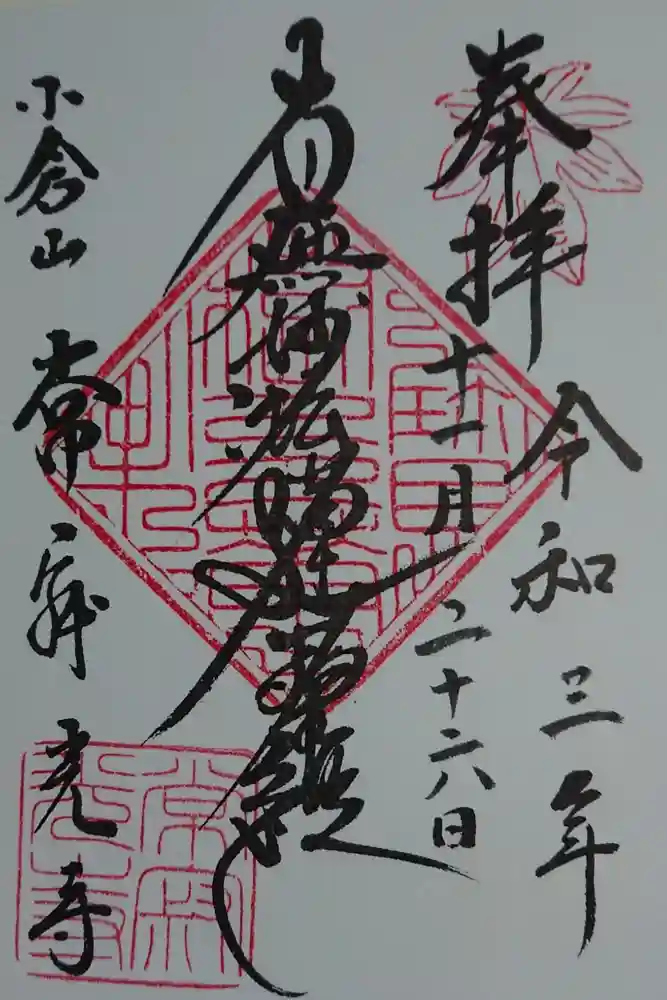 奉拝
令和三年
十一月二十六日
南無妙法蓮華経
小倉山
常寂光寺
常寂光寺